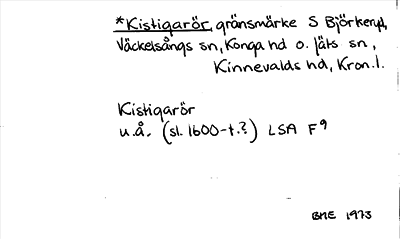 *Kistigarör, gränsmärke S Björkeryd,
Väckelsångs sn, Konga hd o. Jäts sn,
Kinnevalds hd, Kron. l.
Kistigarör
u.å. (sl. 1600-t.?) LSA F9
BME 1973